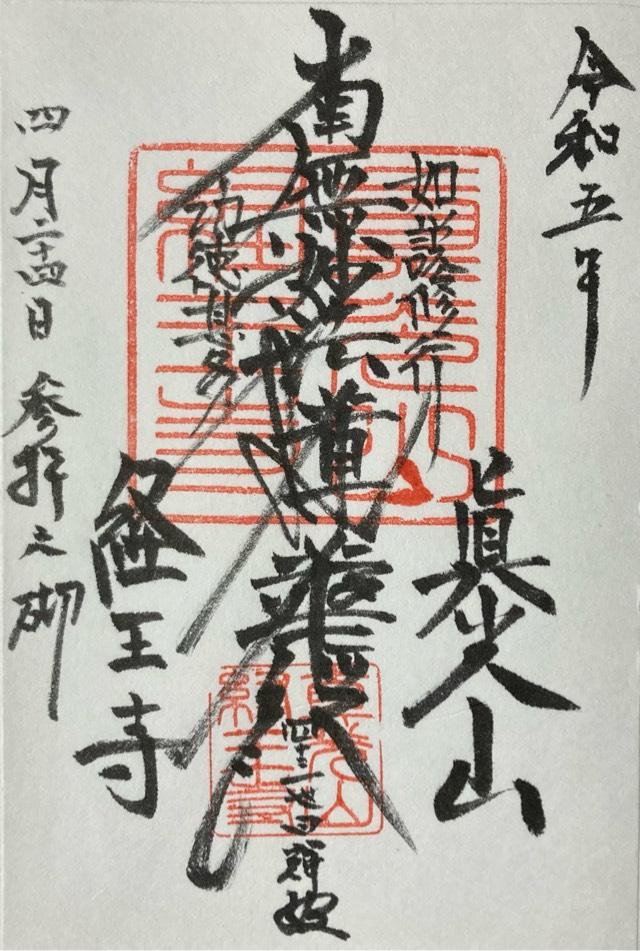 令和五年
眞光山
如説修行
南無妙法蓮華経
功徳甚多
経王寺
四月二十四日 参拝之砌